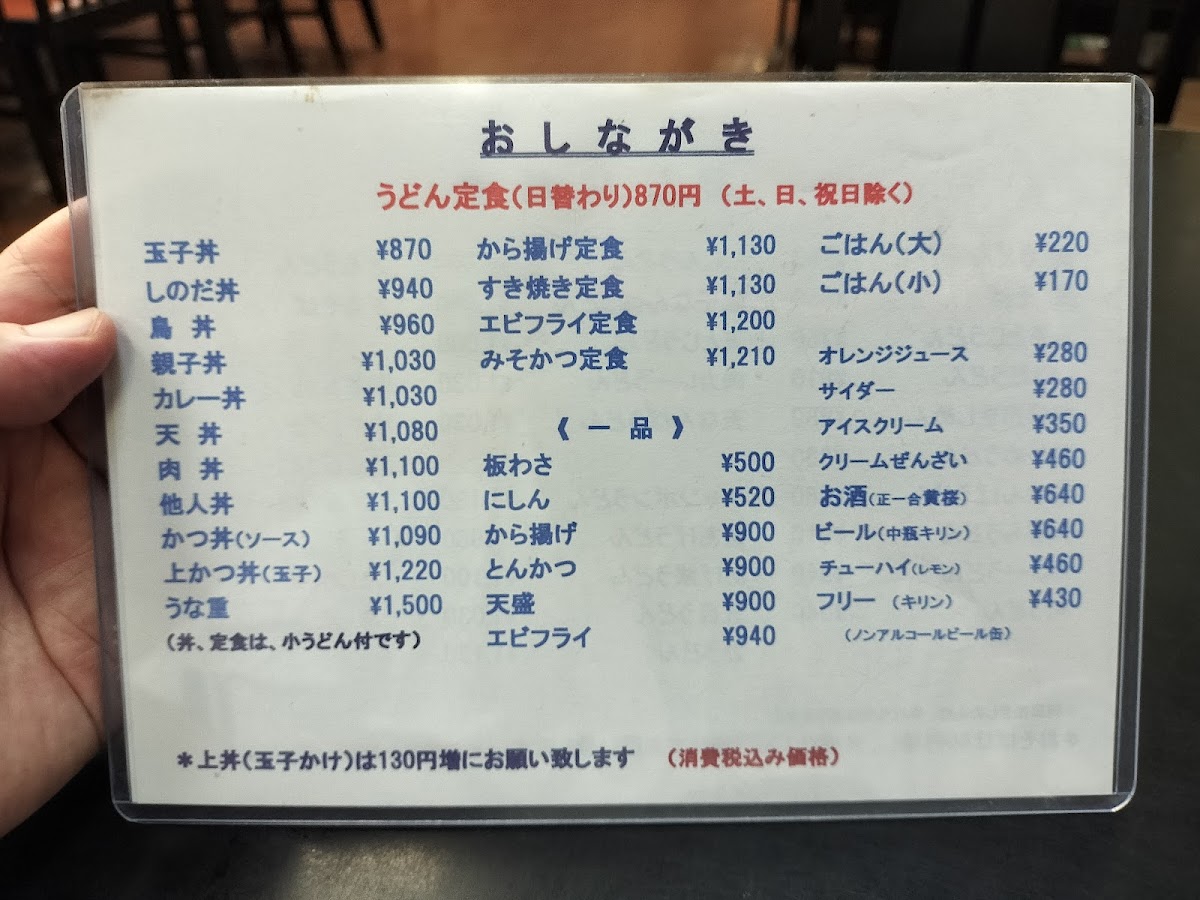 おしながき
うどん定食(日替わり)870円 (土、日、祝日除く)
玉子丼 ¥870
しのだ丼 ¥940
鳥 丼 ¥960
親子丼 ¥1,030
カレー丼 ¥1,030
天 丼 ¥1,080
肉 丼 ¥1,100
他人丼 ¥1,100
かつ丼(ソース) ¥1,090
上かつ丼(玉子) ¥1,220
うな重 ¥1,500
(丼、定食は、小うどん付です)
から揚げ定食 ¥1,130
すき焼き定食 ¥1,130
エビフライ定食 ¥1,200
みそかつ定食 ¥1,210
《 一 品 》
板わさ ¥500
にしん ¥520
から揚げ ¥900
とんかつ ¥900
天盛 ¥900
エビフライ ¥940
ごはん(大) ¥220
ごはん(小) ¥170
オレンジジュース ¥280
サイダー ¥280
アイスクリーム ¥350
クリームぜんざい ¥460
お酒(正一合黄桜) ¥640
ビール(中瓶キリン) ¥640
チューハイ(レモン) ¥460
フリー (キリン) ¥430
(ノンアルコールビール缶)
*上丼(玉子かけ)は130円増にお願い致します (消費税込み価格)